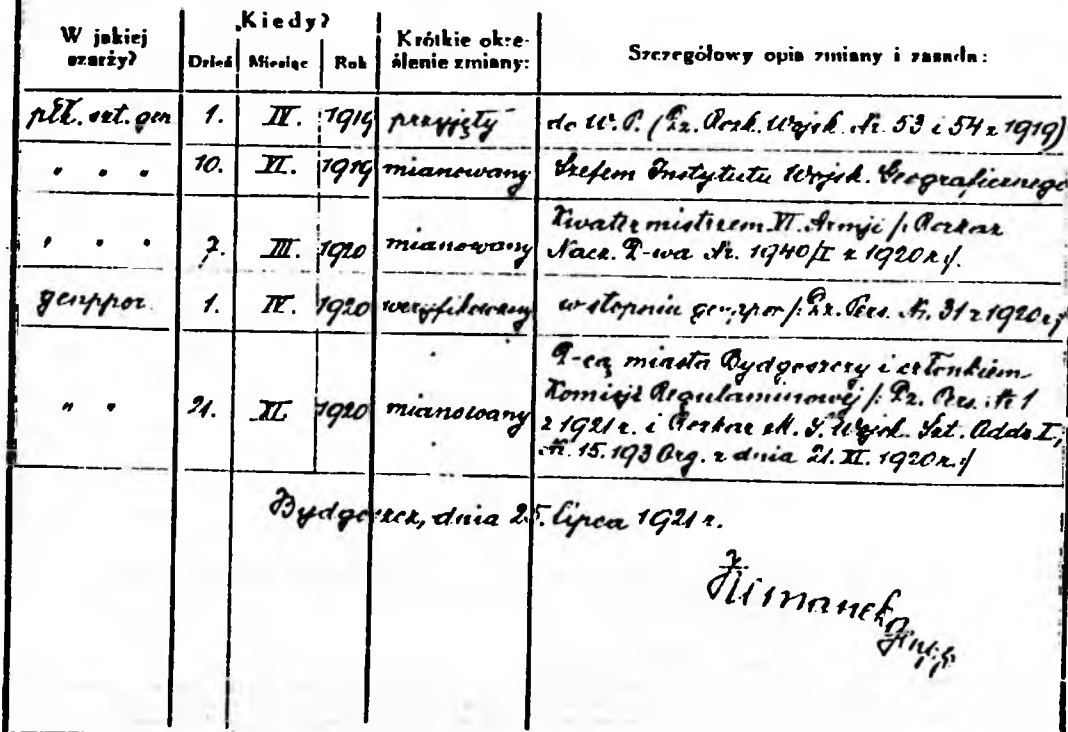 W jakiej szarży?
„Kiedy?
Dzień Miesiąc Rok
Krótkie okre-
ślenie zmiany:
Szczegółowy opis zmiany i zasada:
płk. szt. gen 1. IV. 1919 przyjęty do W. P. (Dz. Rozk. Wojsk. Nr. 53 i 54 z 1919)
" " " 10. VI. 1919 mianowany Szefem Instytutu Wojsk. Geograficznego
" " " 7. III. 1920 mianowany Kwatermistrzem VI. Armji /: Rozkaz
Nacz. D-wa Nr. 1940/I z 1920 r :/.
genppor. 1. IV. 1920 weryfikowany w stopniu genppor /: Dz. Pers. Nr. 31 z 1920 r :/
" " 21. XI. 1920 mianowany D-cą miasta Bydgoszczy i członkiem
Komisji Regulaminowej /: Dz. Pers. Nr 1
z 1921 r. i Rozkaz M. S. Wojsk. Szt. Oddz I,
Nr. 15.193 Org. z dnia 21. XI. 1920 r. :/
Bydgoszcz, dnia 25. lipca 1921 r.